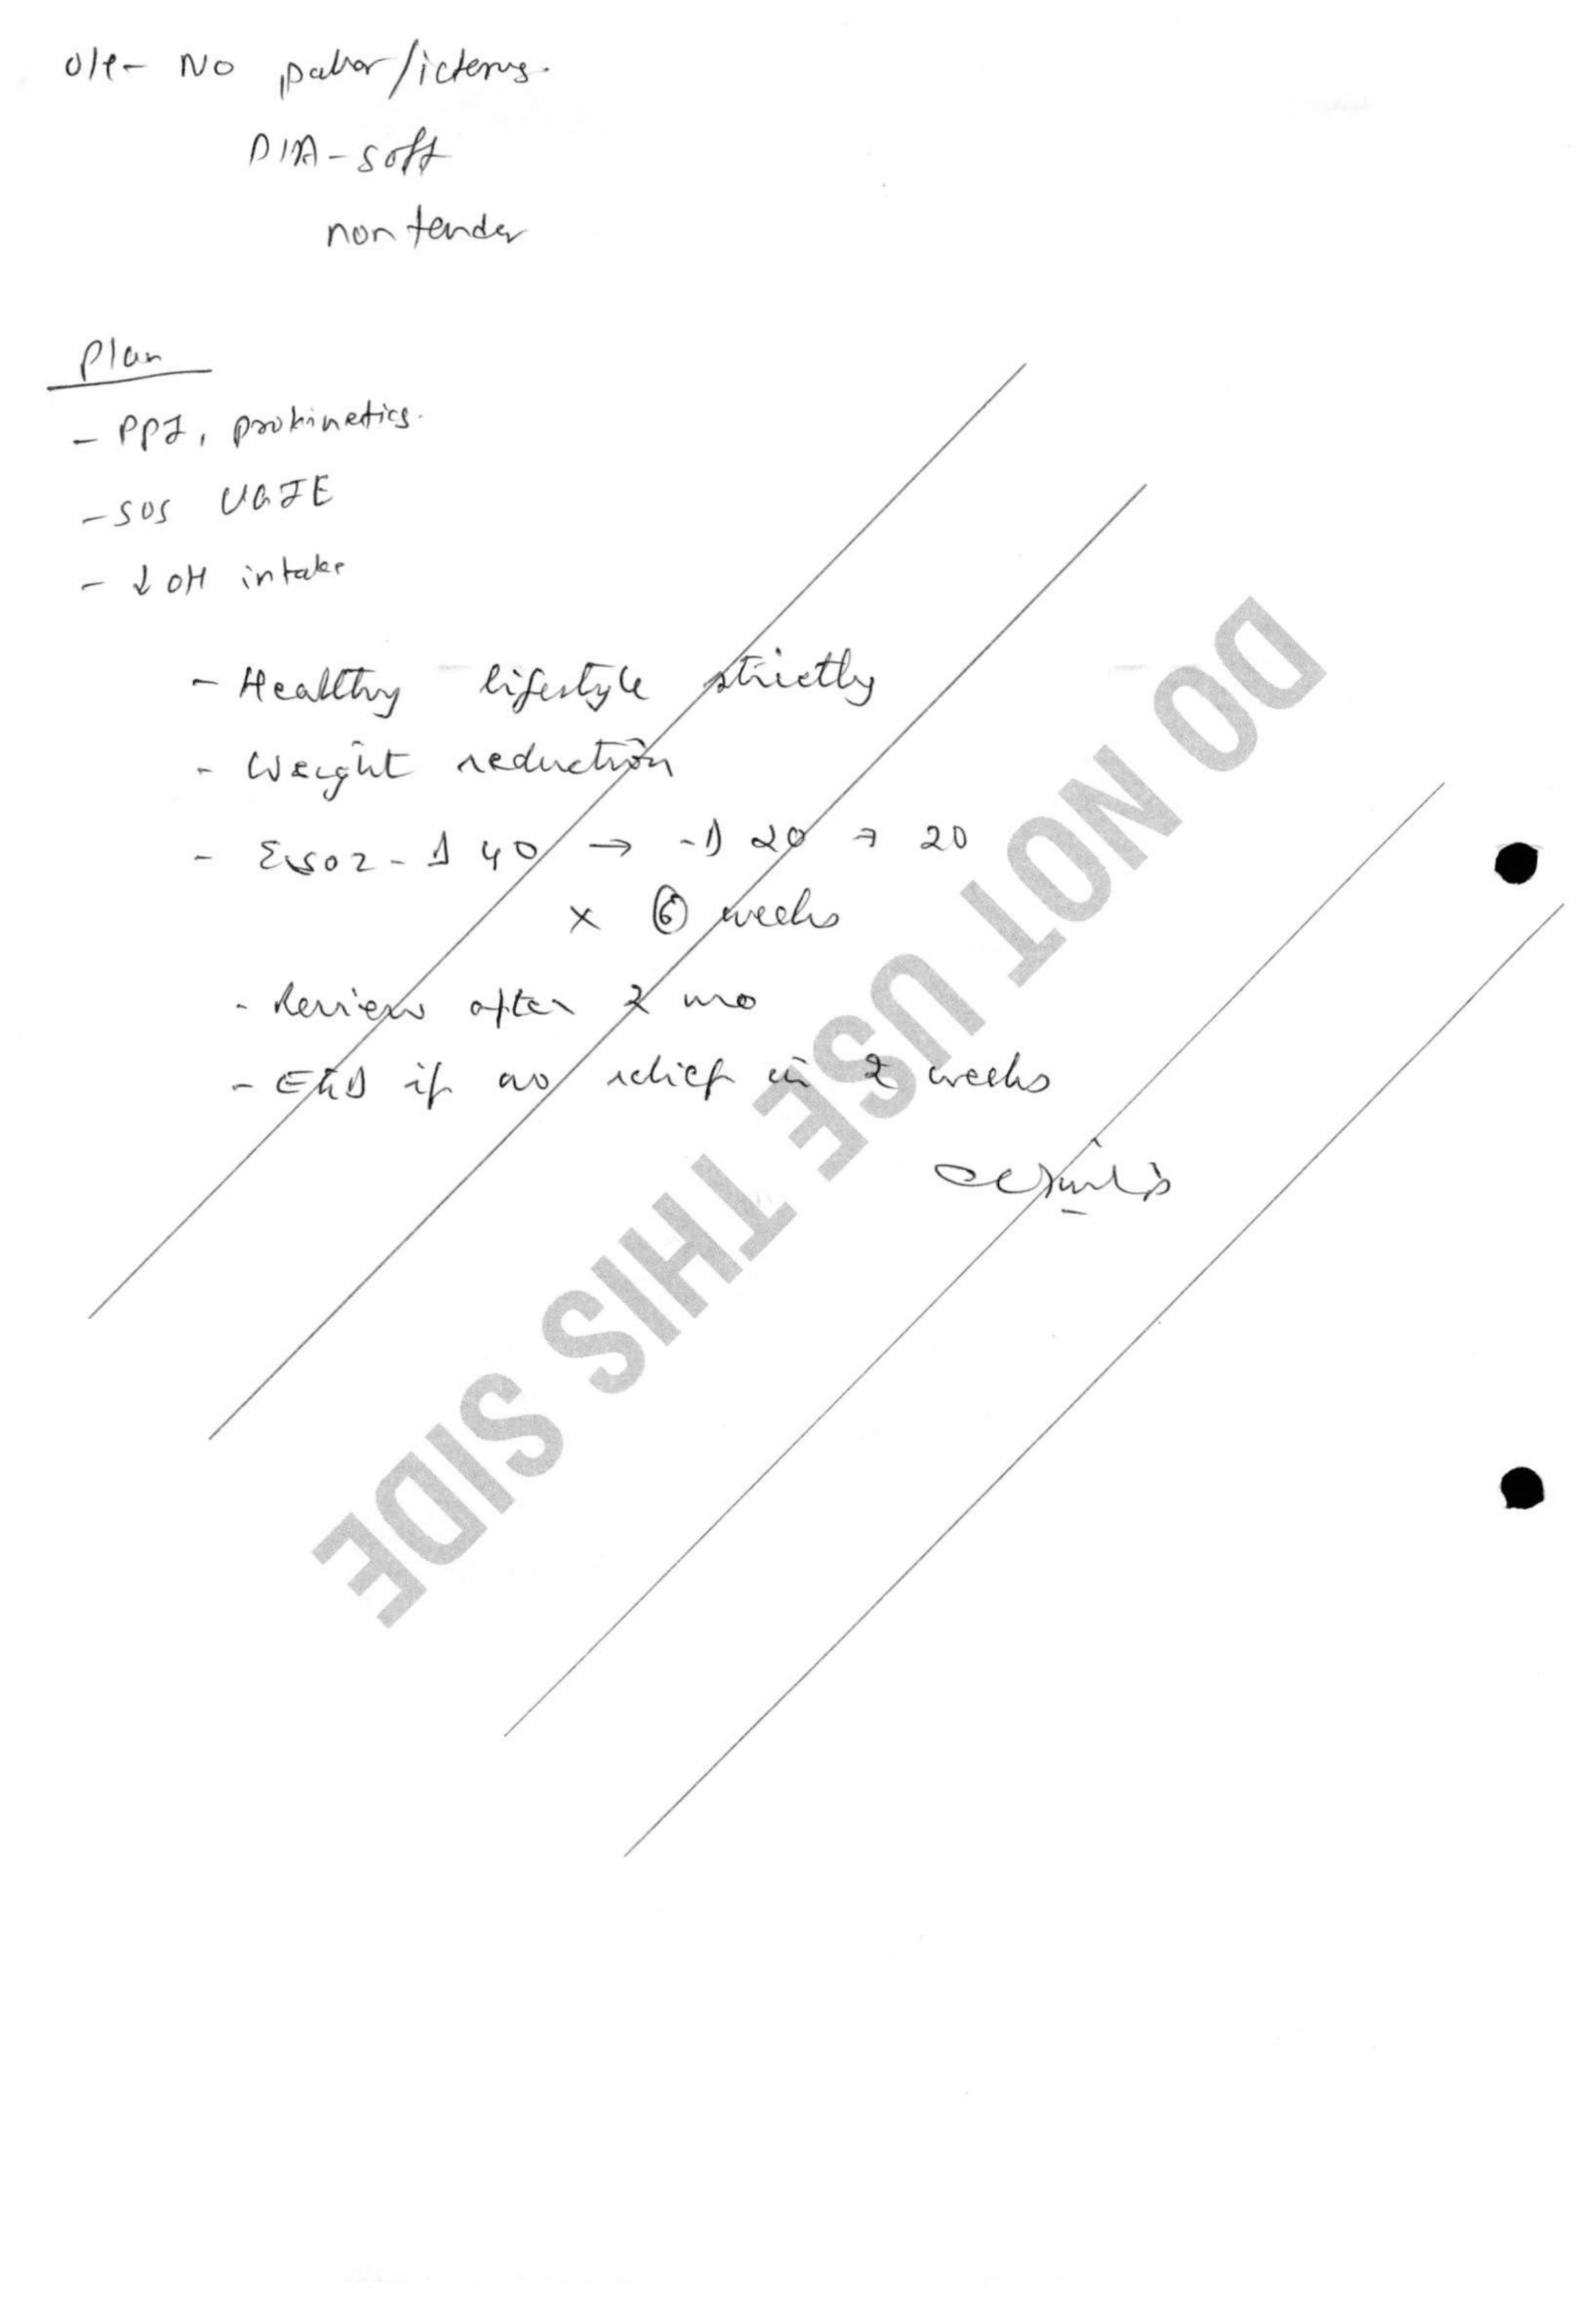 O/E- No pallor/icterus.
P/A - soft
non tender
Plan
- PPI, prokinetics.
- SOS UGIE
- ↓ OH intake
- Healthy lifestyle strictly
- Weight reduction
- 40 → 20 → 20
x ⑥ weeks
- Review after 2 mo
- EGD if no relief in 2 weeks
DO NOT USE THIS SIDE